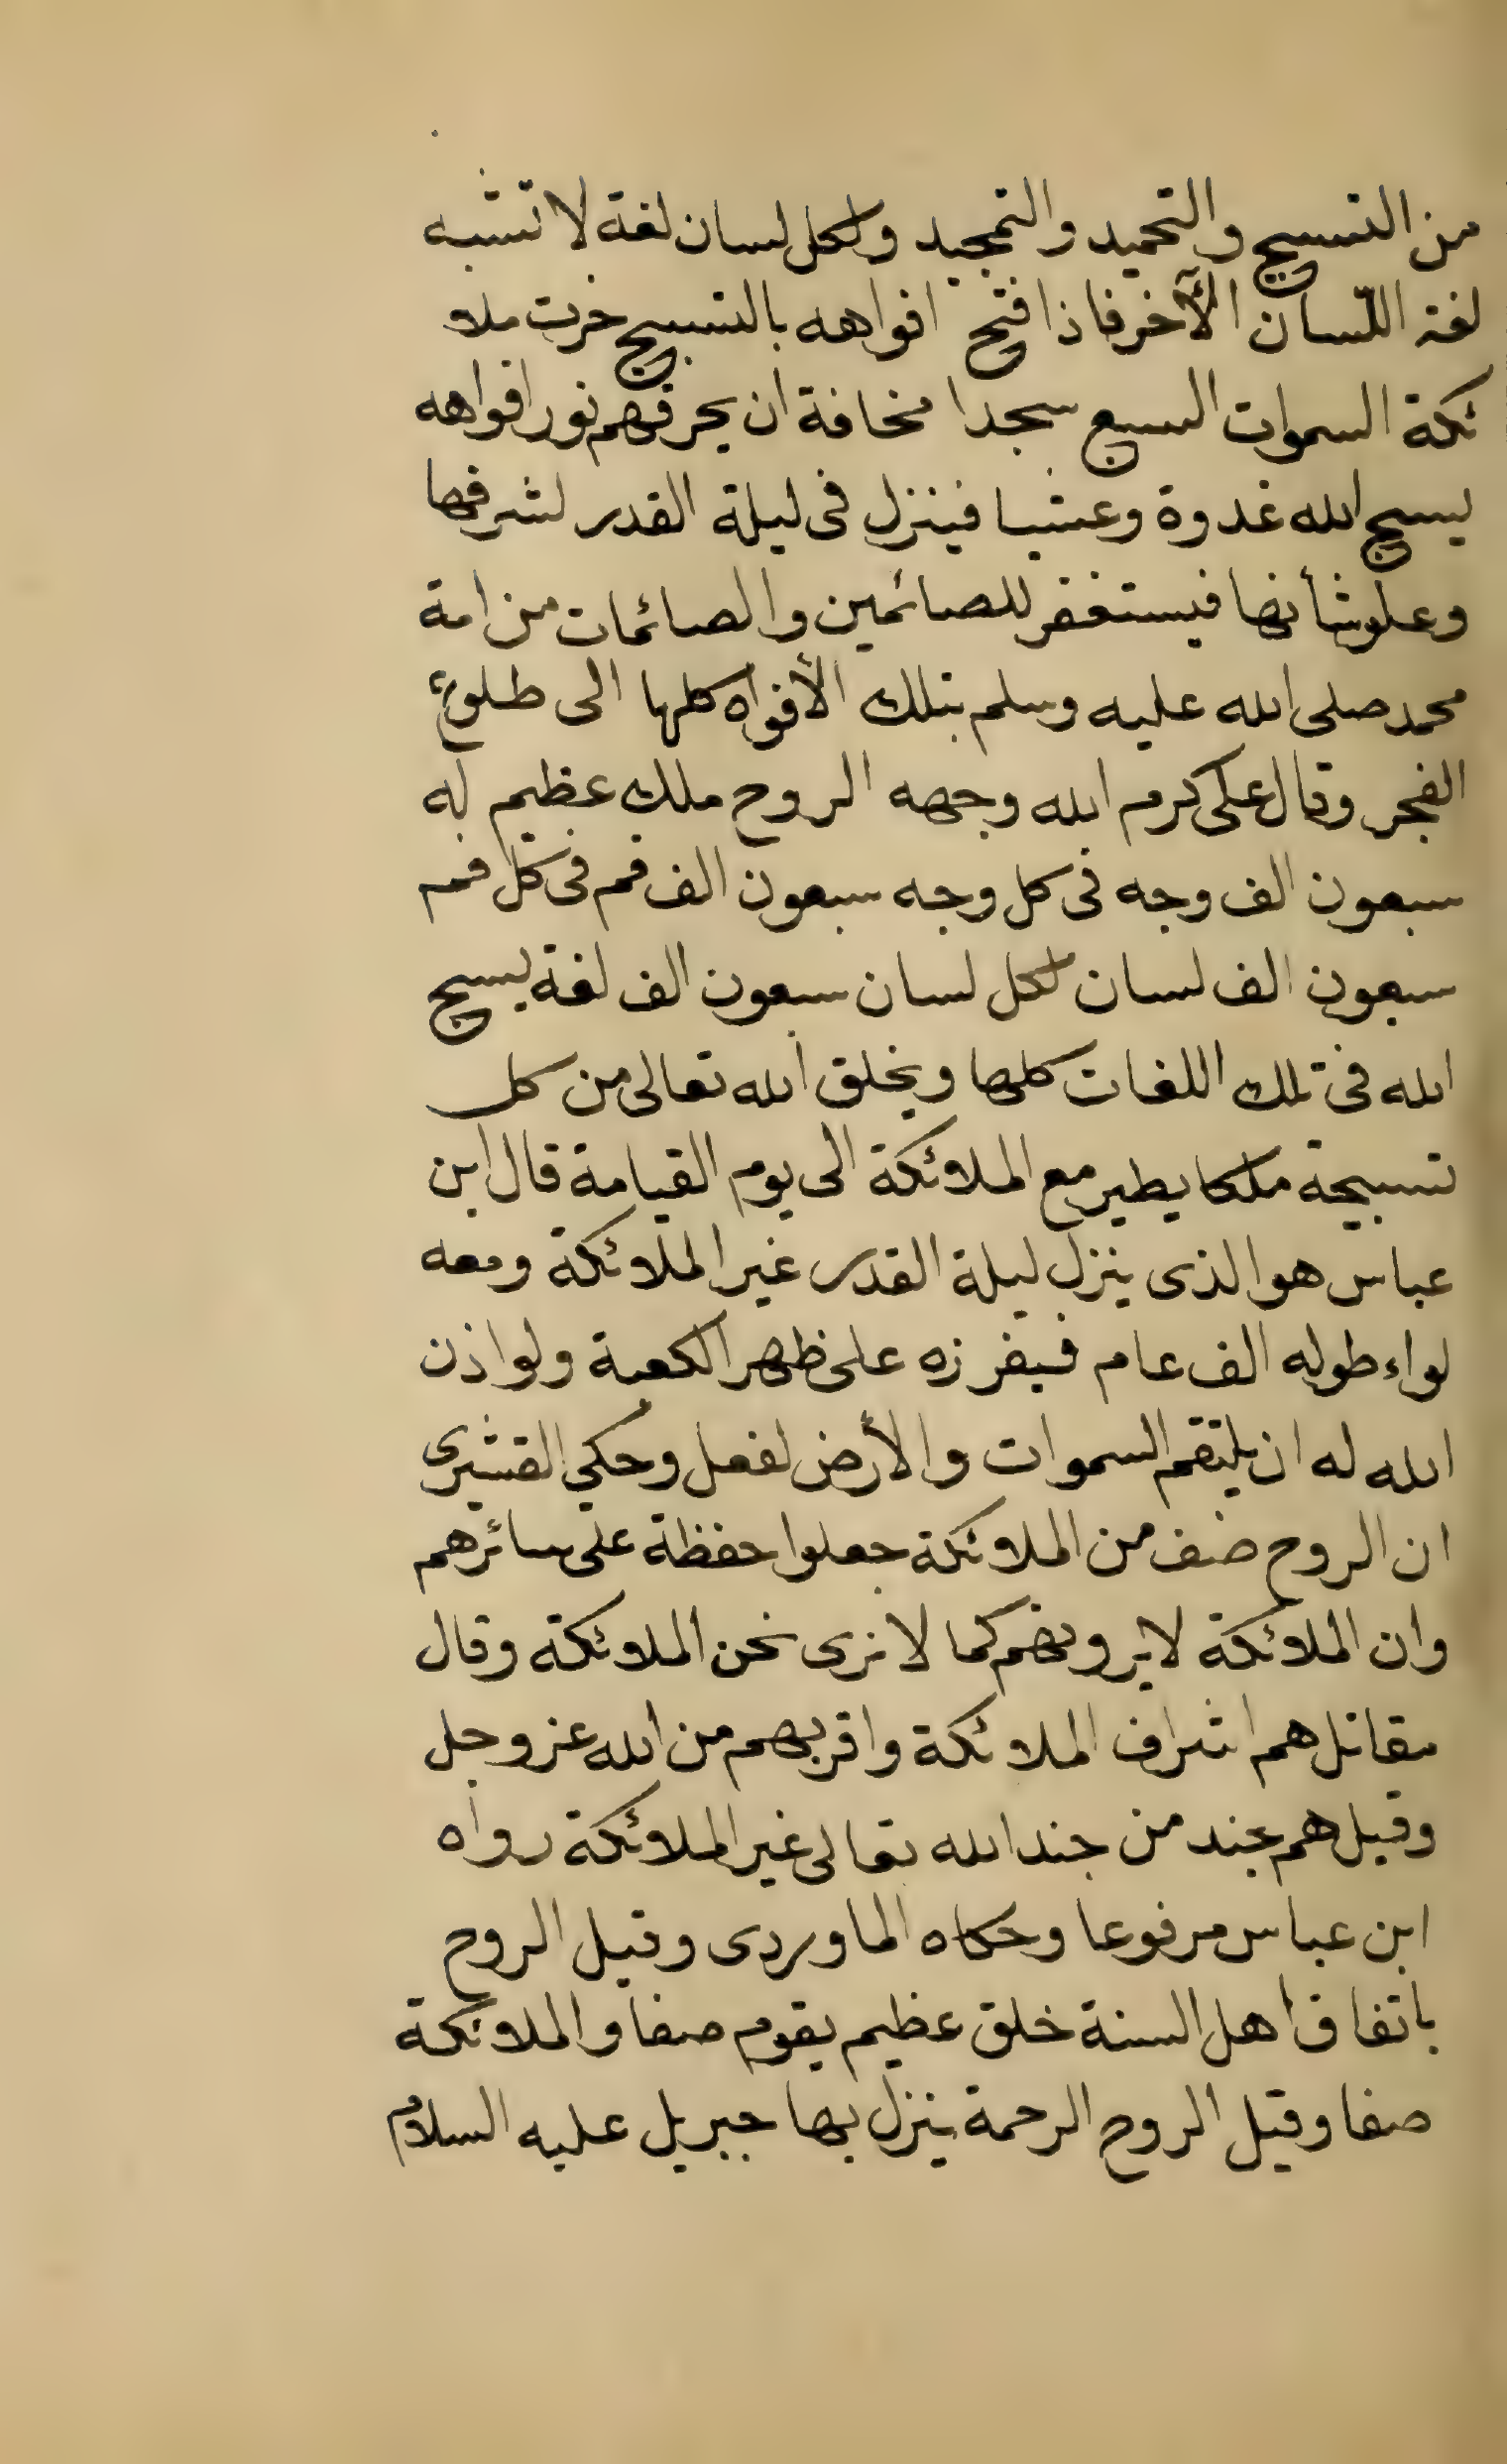 من التسبيح والتحميد والتمجيد ولكل لسان لغة لا تشبه
لغة اللّسان الآخر فاذا فتح افواهه بالتسبيح خرت ملا
ئكة السموات السبع سجدا مخافة ان يحرقهم نور افواهه
يسبح الله غدوة وعشيا فينزل فى ليلة القدر لشرفها
وعلو شأنها فيستغفر للصائمين والصائمات من امة
محمد صلى الله عليه وسلم بتلك الأفواه كلها الى طلوع
الفجر وقال على كرم الله وجهه الروح ملك عظيم له
سبعون الف وجه فى كل وجه سبعون الف فم فى كل فم
سبعون الف لسان لكل لسان سبعون الف لغة يسبح
الله فى تلك اللغات كلها ويخلق الله تعالى من كل
تسبيحة ملكا يطير مع الملائكة الى يوم القيامة قال ابن
عباس هو الذى ينزل ليلة القدر غير الملائكة ومعه
لواء طوله الف عام فيغرزه على ظهر الكعبة ولو اذن
الله له ان يلتقم السموات والأرض لفعل وحكي القشيرى
ان الروح صنف من الملائكة جعلوا حفظة على سائرهم
وان الملائكة لا يرونهم كما لا نرى نحن الملائكة وقال
مقاتل هم اشراف الملائكة واقربهم من الله عز وجل
وقيل هم جند من جند الله تعالى غير الملائكة رواه
ابن عباس مرفوعا وحكاه الماوردى وقيل الروح
باتفاق اهل السنة خلق عظيم يقوم صفا والملائكة
صفا وقيل الروح الرحمة ينزل بها جبريل عليه السلام